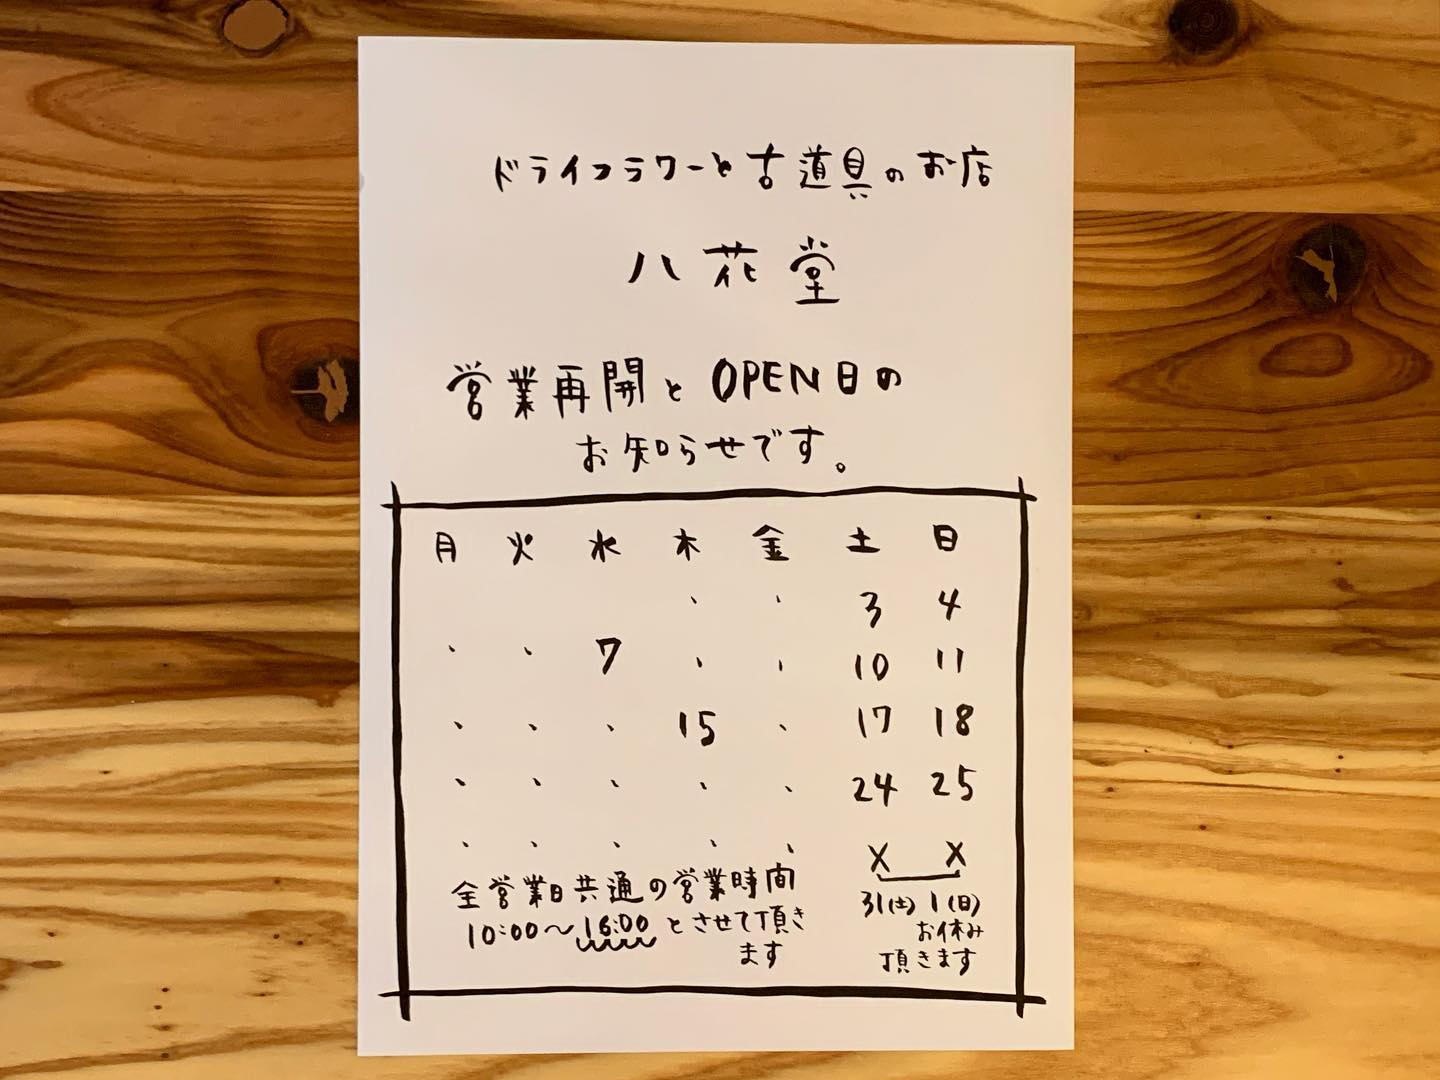 ドライフラワーと古道具のお店
八花堂
営業再開とOPEN日の
お知らせです。
月 火 水 木 金 土 日
、 、 3 4
、 、 7 、 、 10 11
、 、 、 15 、 17 18
、 、 、 、 、 24 25
、 、 、 、 、 X X
全営業日共通の営業時間
10:00〜16:00とさせて頂き
ます
31(土) 1(日)
お休み
頂きます